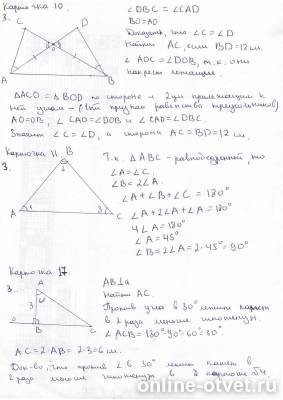 Карточка 10.
3.
C D
A B
∠DBC = ∠CAD
BO=AO
Доказать, что ∠C = ∠D
Найти AC, если BD=12м.
∠AOC = ∠DOB, т.к. они
накрест лежащие.
ΔACO = ΔBOD по стороне и 2ум прилежащим к
ней углам - (1й признак равенства треугольников)
AO=OB, ∠CAO=∠DOB и ∠CAO=∠DBC.
Значит ∠C = ∠D, а сторона AC=BD=12 м.
Карточка 11.
3.
B
2
A 1 3 C
Т.к. ΔABC - равнобедренный, то
∠A = ∠C.
∠B = 2∠A.
∠A + ∠B + ∠C = 180°
∠A + 2∠A + ∠A = 180°
4∠A = 180°
∠A = 45°
∠B = 2∠A = 2·45° = 90°
Карточка 17
3.
A
a B C
AB⊥a
Найти AC.
Против угла в 30° лежит катет
в 2 раза меньше гипотенузы.
∠ACB = 180°-90°-60° = 30°
AC = 2·AB = 2·3 = 6м.
Док-во, что против ∠ в 30° лежит катет в
2 раза меньше гипотенузы в карточке 14.
online-otvet.ru